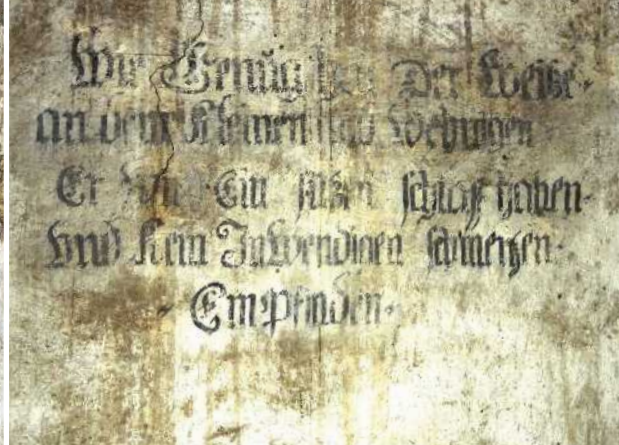 Wie Wenig hat Der Weise
an dem Kleinen und
Er Wird Ein süßen schlaff haben
Vnd Kein InWendigen schmertzen
Empfinden